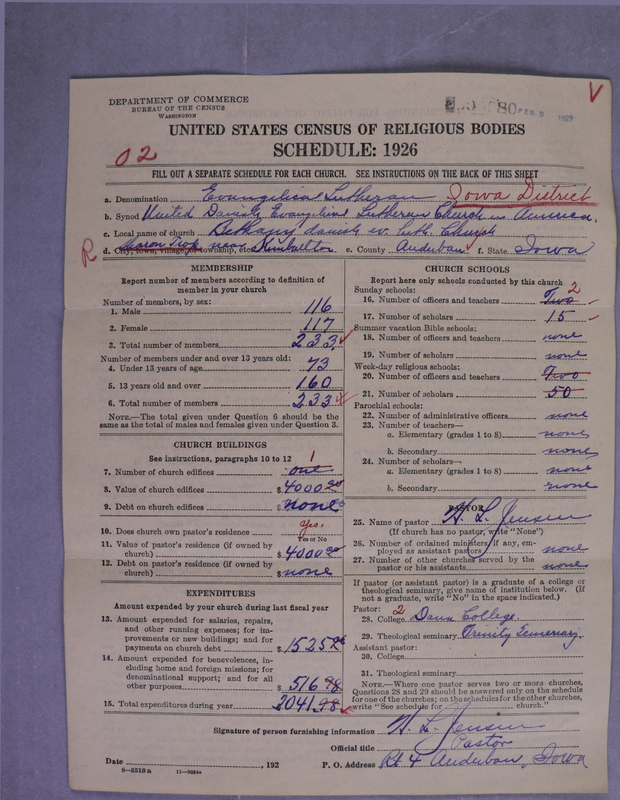 DEPARTMENT OF COMMERCE
BUREAU OF THE CENSUS
WASHINGTON
80 FEB 1929
V
UNITED STATES CENSUS OF RELIGIOUS BODIES
02
SCHEDULE: 1926
FILL OUT A SEPARATE SCHEDULE FOR EACH CHURCH. SEE INSTRUCTIONS ON THE BACK OF THIS SHEET
a. Denomination Evangelical Lutheran Iowa District
b. Synod United Danish Evangelical Lutheran Church in America.
c. Local name of church Bethany danish ev. Luth. Church
R d. City, town, village, or township, etc. Sharon Twp. near Kimballton e. County Audubon f. State Iowa
MEMBERSHIP
Report number of members according to definition of
member in your church
Number of members, by sex:
1. Male 116
2. Female 117
3. Total number of members 233
Number of members under and over 13 years old:
4. Under 13 years of age 73
5. 13 years old and over 160
6. Total number of members 233
NOTE.—The total given under Question 6 should be the
same as the total of males and females given under Question 3.
CHURCH BUILDINGS
See instructions, paragraphs 10 to 12
7. Number of church edifices one 1
8. Value of church edifices $ 4000.00
9. Debt on church edifices $ none
10. Does church own pastor's residence? yes.
Yes or No
11. Value of pastor's residence (if owned by
church) $ 4000.00
12. Debt on pastor's residence (if owned by
church) $ none
EXPENDITURES
Amount expended by your church during last fiscal year
13. Amount expended for salaries, repairs,
and other running expenses; for im-
provements or new buildings; and for
payments on church debt $ 1525
14. Amount expended for benevolences, in-
cluding home and foreign missions; for
denominational support; and for all
other purposes $ 516.98
15. Total expenditures during year 2041.98
CHURCH SCHOOLS
Report here only schools conducted by this church
Sunday schools:
16. Number of officers and teachers Two 2
17. Number of scholars 15
Summer vacation Bible schools:
18. Number of officers and teachers none
19. Number of scholars none
Week-day religious schools:
20. Number of officers and teachers Two
21. Number of scholars 50
Parochial schools:
22. Number of administrative officers none
23. Number of teachers—
a. Elementary (grades 1 to 8) none
b. Secondary none
24. Number of scholars—
a. Elementary (grades 1 to 8) none
b. Secondary none
PASTOR
25. Name of pastor H. L. Jensen
(If church has no pastor, write "None")
26. Number of ordained ministers, if any, em-
ployed as assistant pastors none
27. Number of other churches served by the
pastor or his assistants none
If pastor (or assistant pastor) is a graduate of a college or
theological seminary, give name of institution below. (If
not a graduate, write "No" in the space indicated.)
Pastor: 2
28. College Dana College
29. Theological seminary Trinity Seminary.
Assistant pastor:
30. College
31. Theological seminary
NOTE.—Where one pastor serves two or more churches,
Questions 28 and 29 should be answered only on the schedule
for one of the churches; on the schedules for the other churches,
write "See schedule for church."
Signature of person furnishing information H. L. Jensen
Official title Pastor
Date , 192 P. O. Address Rt 4 Audubon, Iowa
8—5318 a